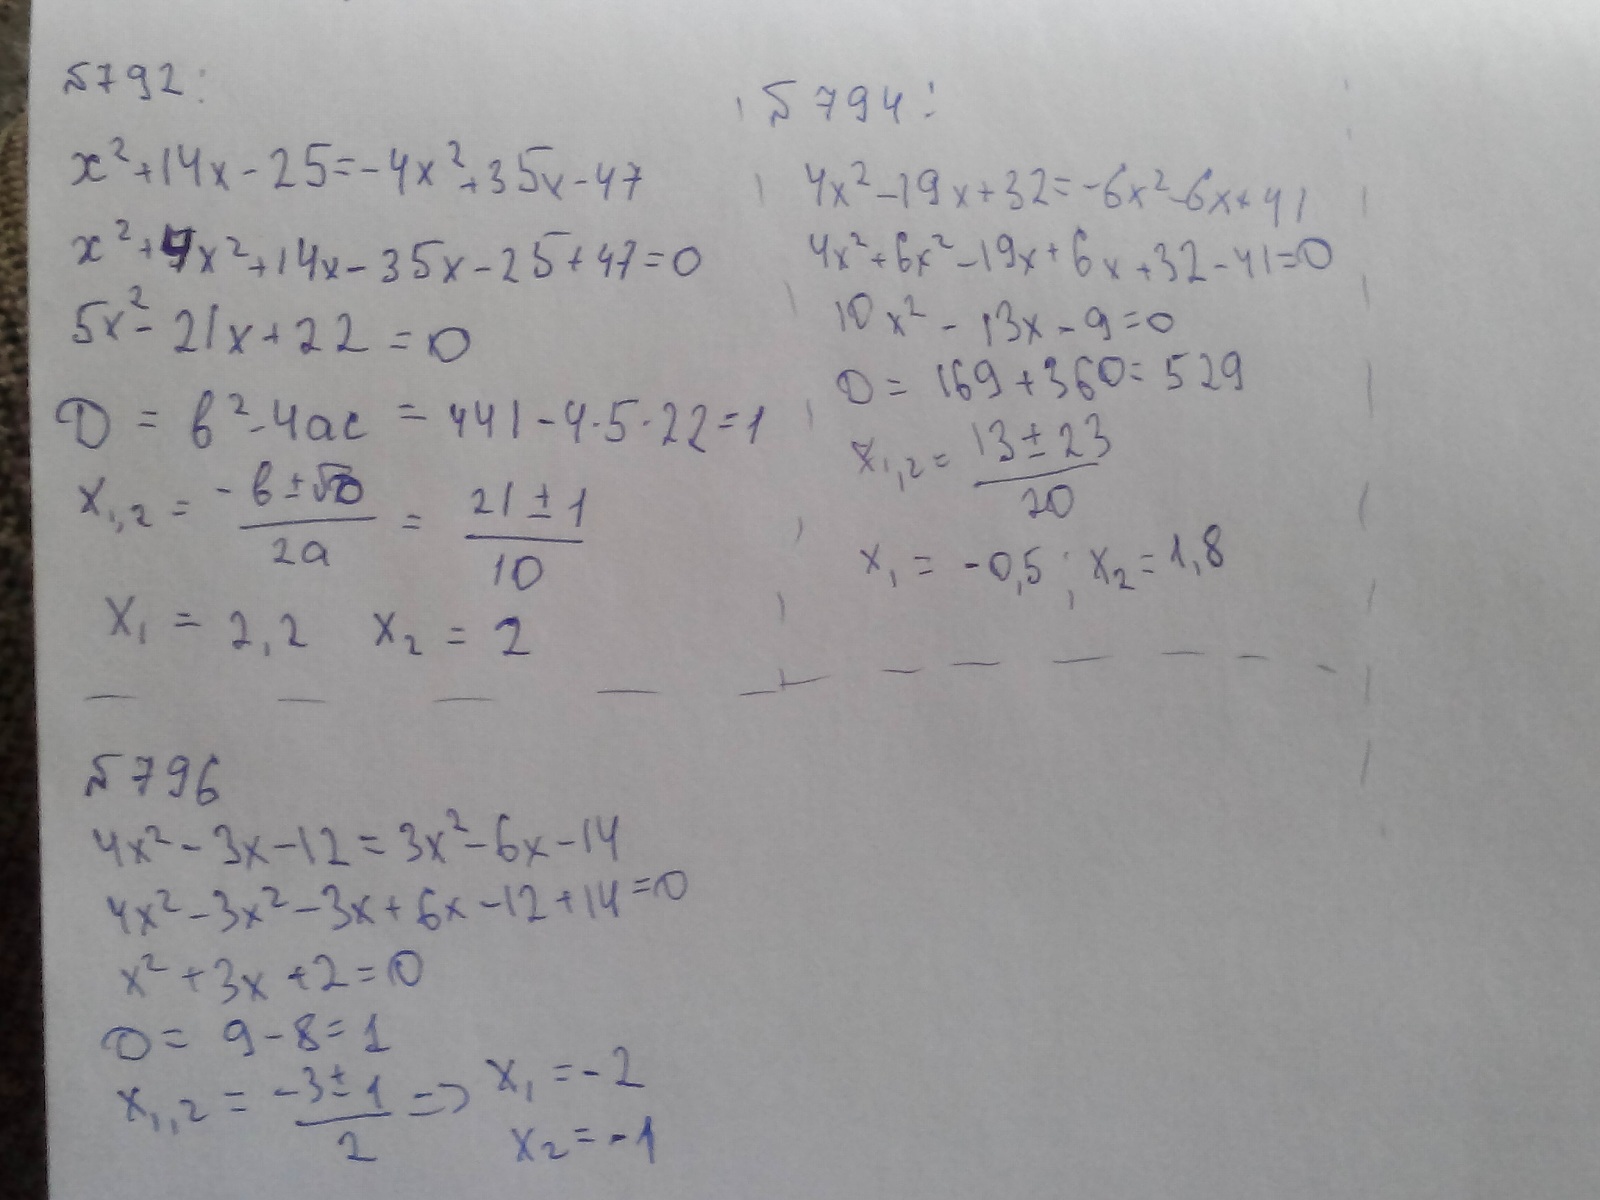 №792:
x²+14x-25=-4x²+35x-47
x²+4x²+14x-35x-25+47=0
5x²-21x+22=0
D=b²-4ac=441-4·5·22=1
x₁,₂=(-b±√D)/2a=(21±1)/10
x₁=2,2 x₂=2
№794:
4x²-19x+32=-6x²-6x+41
4x²+6x²-19x+6x+32-41=0
10x²-13x-9=0
D=169+360=529
x₁,₂=(13±23)/20
x₁=-0,5; x₂=1,8
№796
4x²-3x-12=3x²-6x-14
4x²-3x²-3x+6x-12+14=0
x²+3x+2=0
D=9-8=1
x₁,₂=(-3±1)/2 => x₁=-2
x₂=-1